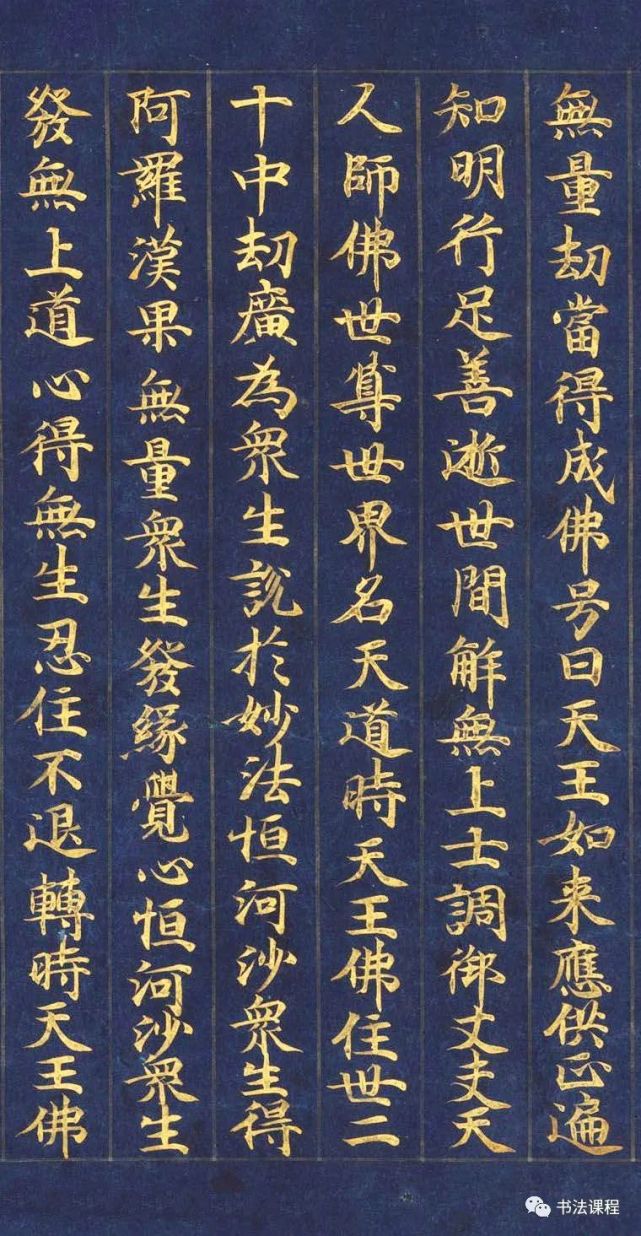 無量劫當得成佛号曰天王如来應供正遍
知明行足善逝世間解無上士調御丈夫天
人師佛世尊世界名天道時天王佛住世二
十中劫廣為衆生說於妙法恒河沙衆生得
阿羅漢果無量衆生發緣覺心恒河沙衆生
發無上道心得無生忍住不退轉時天王佛
书法课程